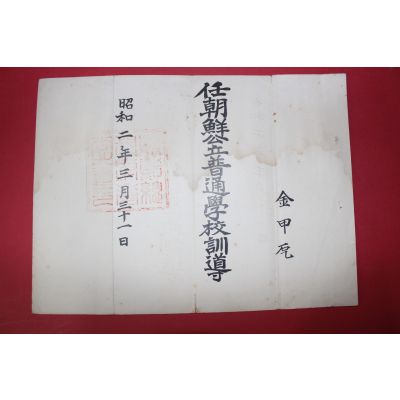 金甲
任朝鮮公立普通學校訓導
昭和二年三月三十一日